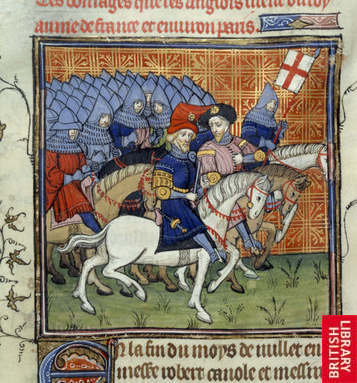 Les domages que les anglois firent ou roy
aume de france et environ paris.
En la fin du moys de iuillet en
messe robert canole et messir
BRITISH
LIBRARY